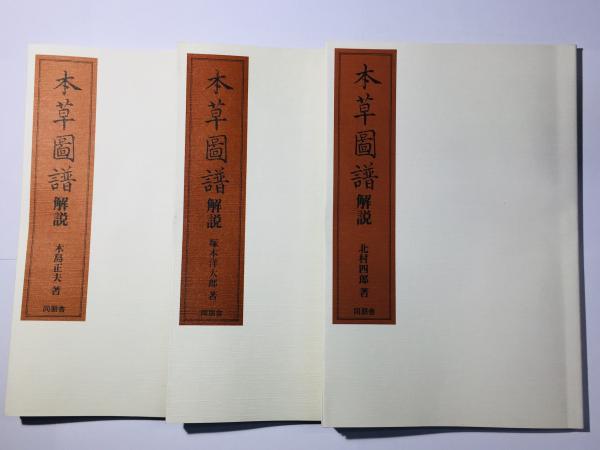 本草圖譜
解説
木島正夫 著
同朋舎
本草圖譜
解説
塚本洋太郎 著
同朋舎
本草圖譜
解説
北村四郎 著
同朋舎